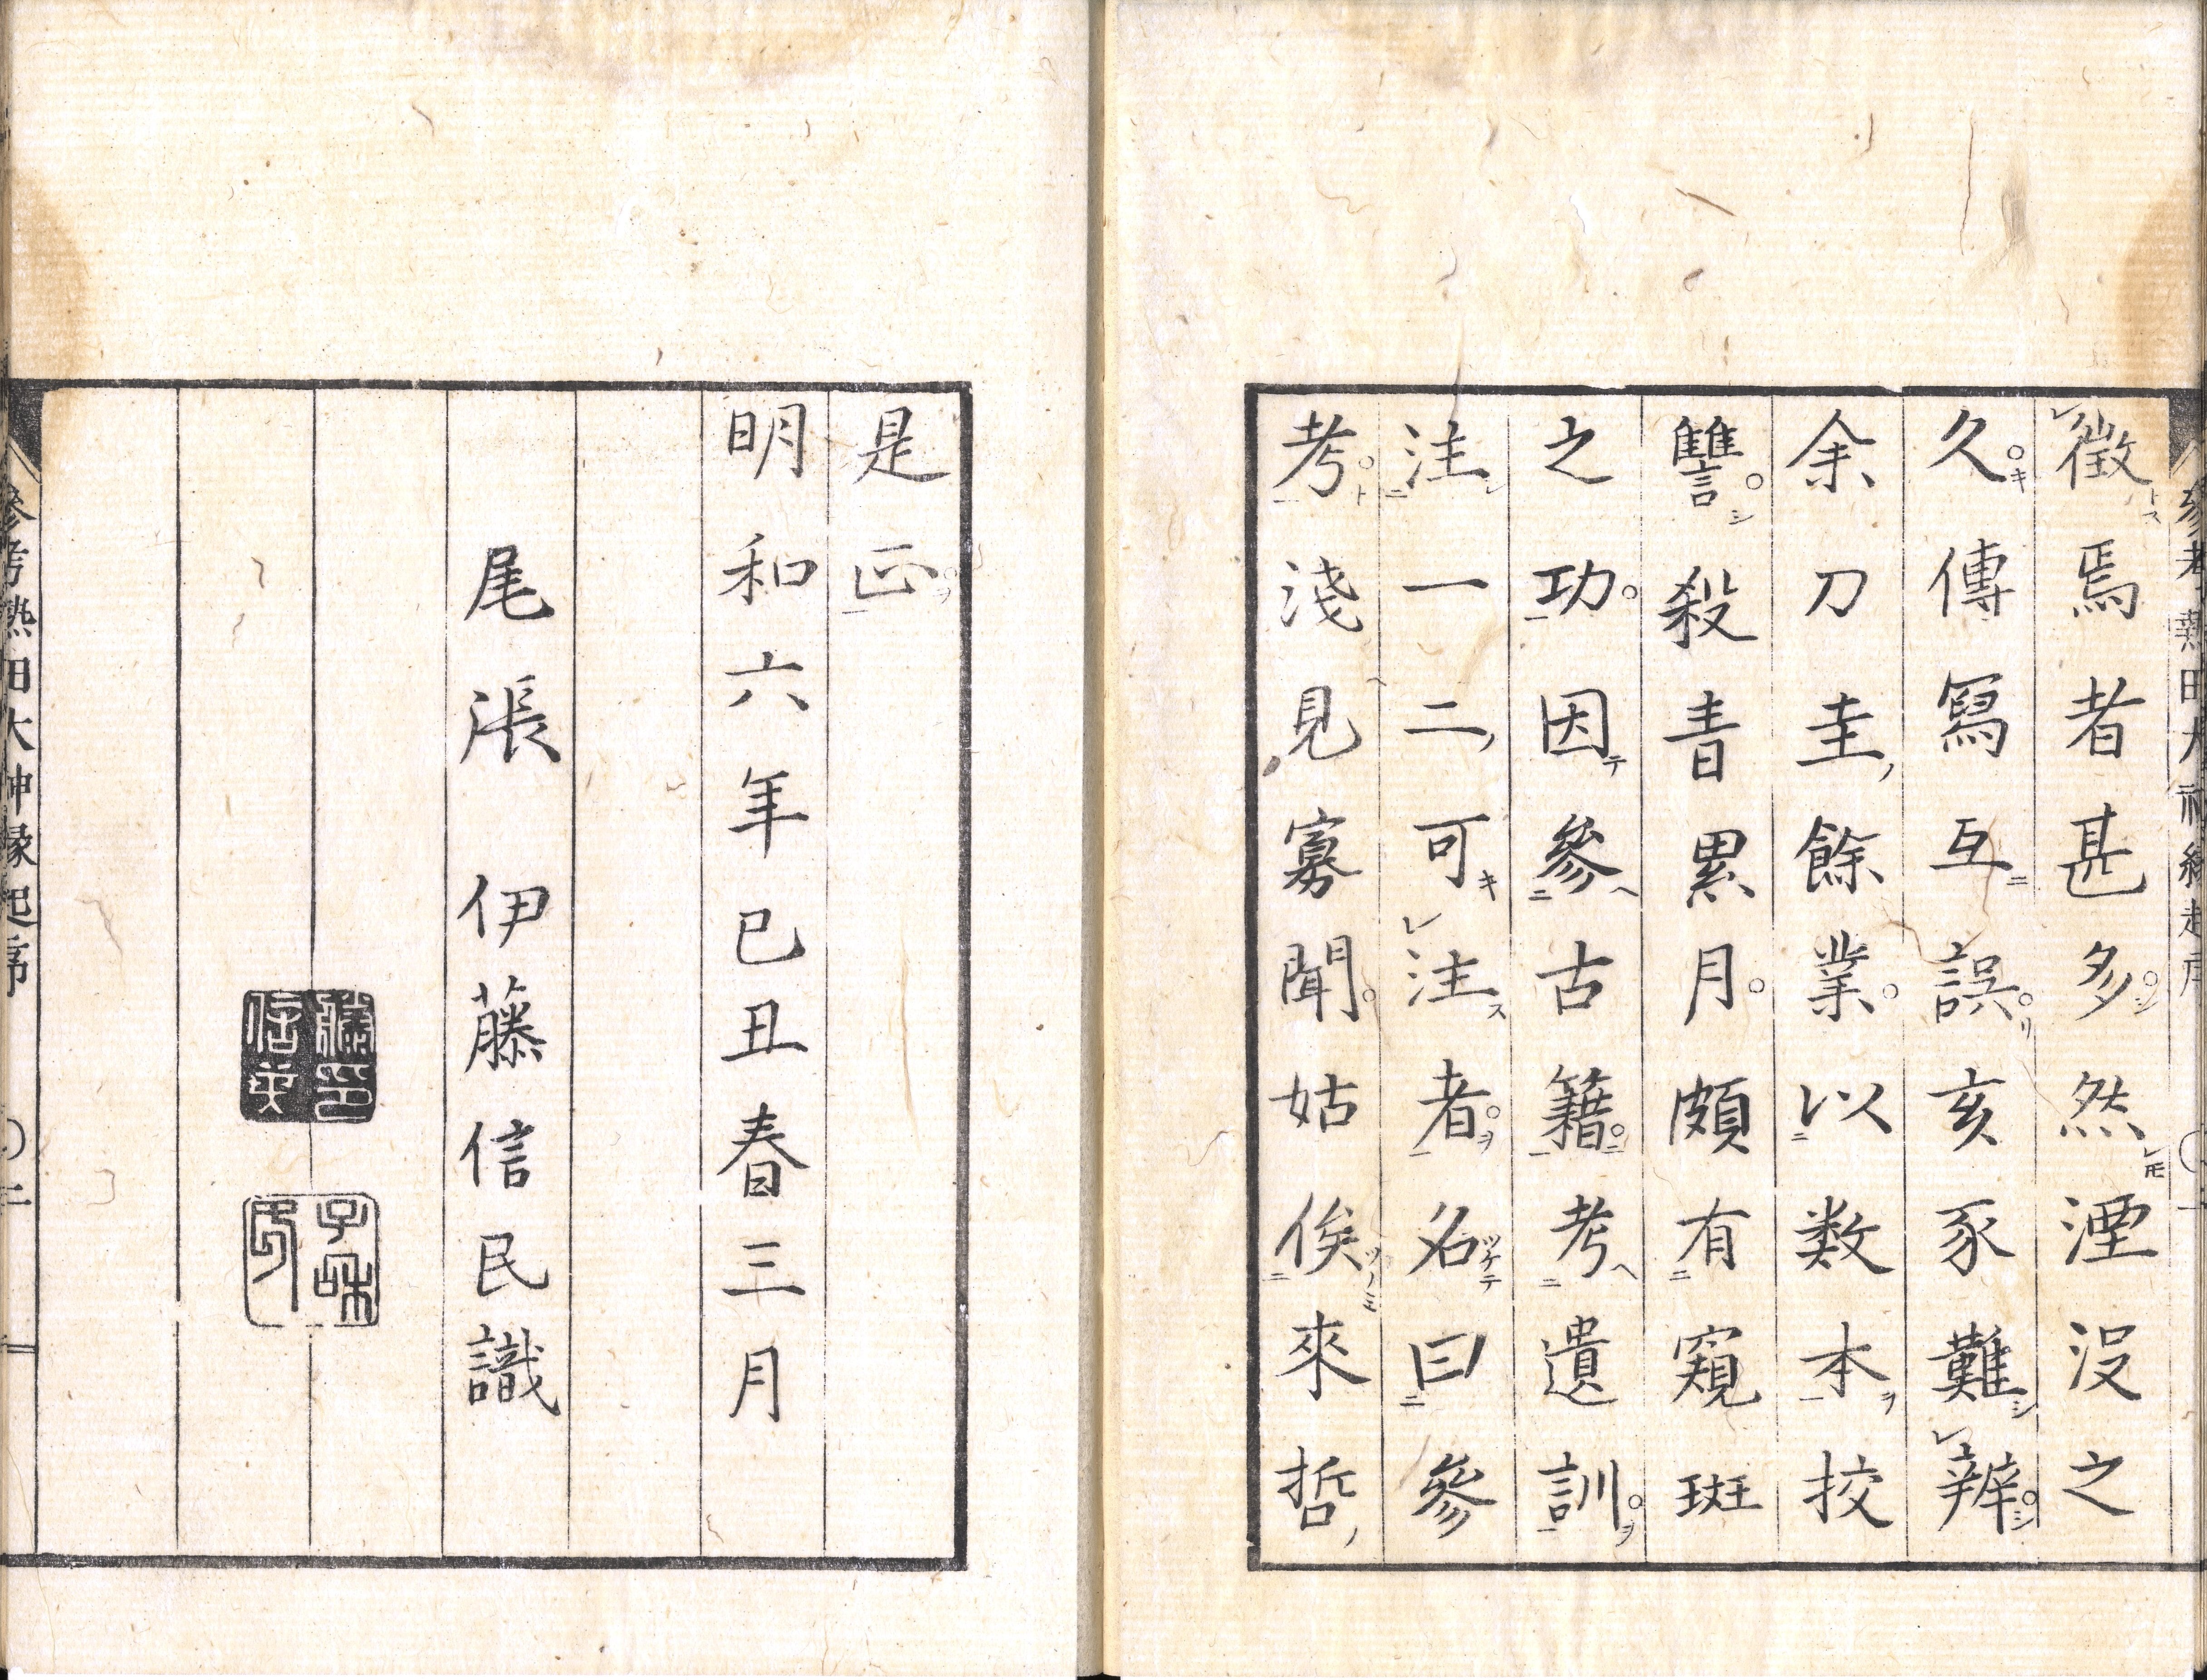 徵焉者甚多然湮没之
久傳寫互誤亥豕難辨
余刀圭餘業以数本挍
讐殺青累月頗有窺斑
之功因參古籍考遺訓
注一二可注者名曰參
考淺見寡聞姑俟來哲
是正
明和六年己丑春三月
尾張 伊藤信民識
參考熱田大神縁起序 〇二